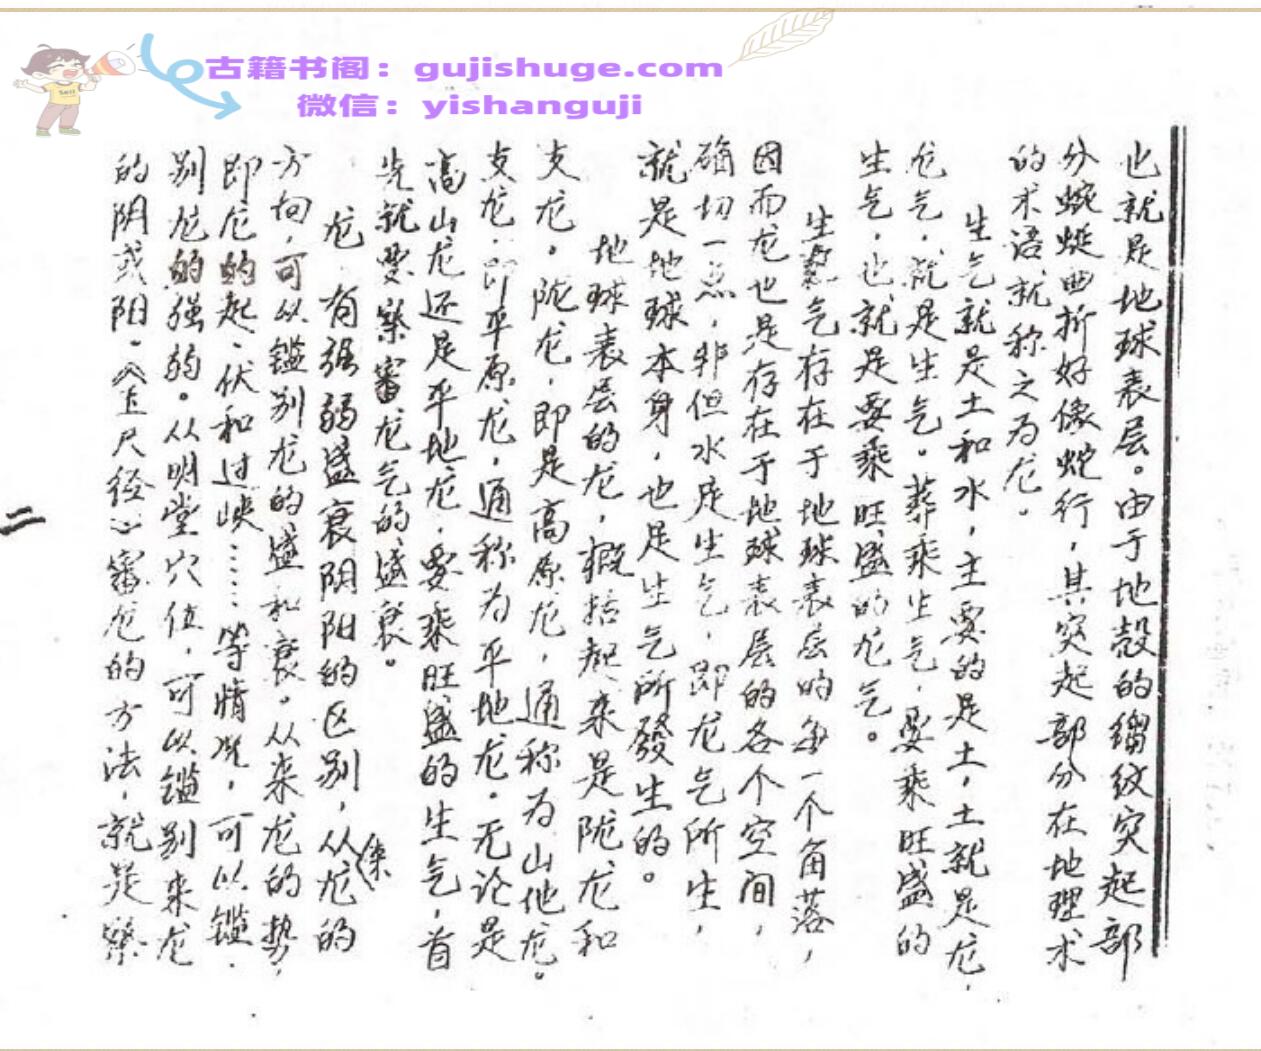 古籍书阁：gujishuge.com
微信：yishanguji
也就是地球表层。由于地殻的绉纹突起部
分蜿蜒曲折好像蛇行，其突起部分在地理术
的术语就称之为龙。
生气就是土和水，主要的是土，土就是龙，
龙气，就是生气。葬乘生气，要乘旺盛的
生气，也就是要乘旺盛的龙气。
生气存在于地球表层的每一个角落，
因而龙也是存在于地球表层的各个空间，
确切一点，非但水是生气，即龙气所生，
就是地球本身，也是生气所發生的。
地球表层的龙，概括起来是陇龙和
支龙。陇龙，即是高原龙，通称为山他龙。
支龙，即平原龙，通称为平地龙。无论是
高山龙还是平地龙，要乘旺盛的生气，首
先就要察審龙气的盛衰。
龙有强弱盛衰阴阳的区别，从来龙的
方向，可以鑑别龙的盛和衰。从来龙的势，
即龙的起、伏和过峡……等情况，可以鑑
别龙的强弱。从明堂穴位，可以鑑别来龙
的阴或阳。尺经心審龙的方法，就是察
二